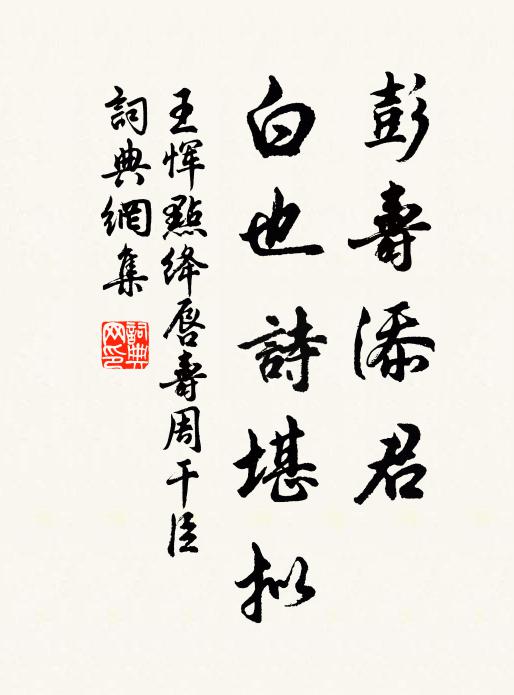 彭壽添君
白也詩堪擬
王惲點絳唇壽周干臣
詞典網集
詞典
网印